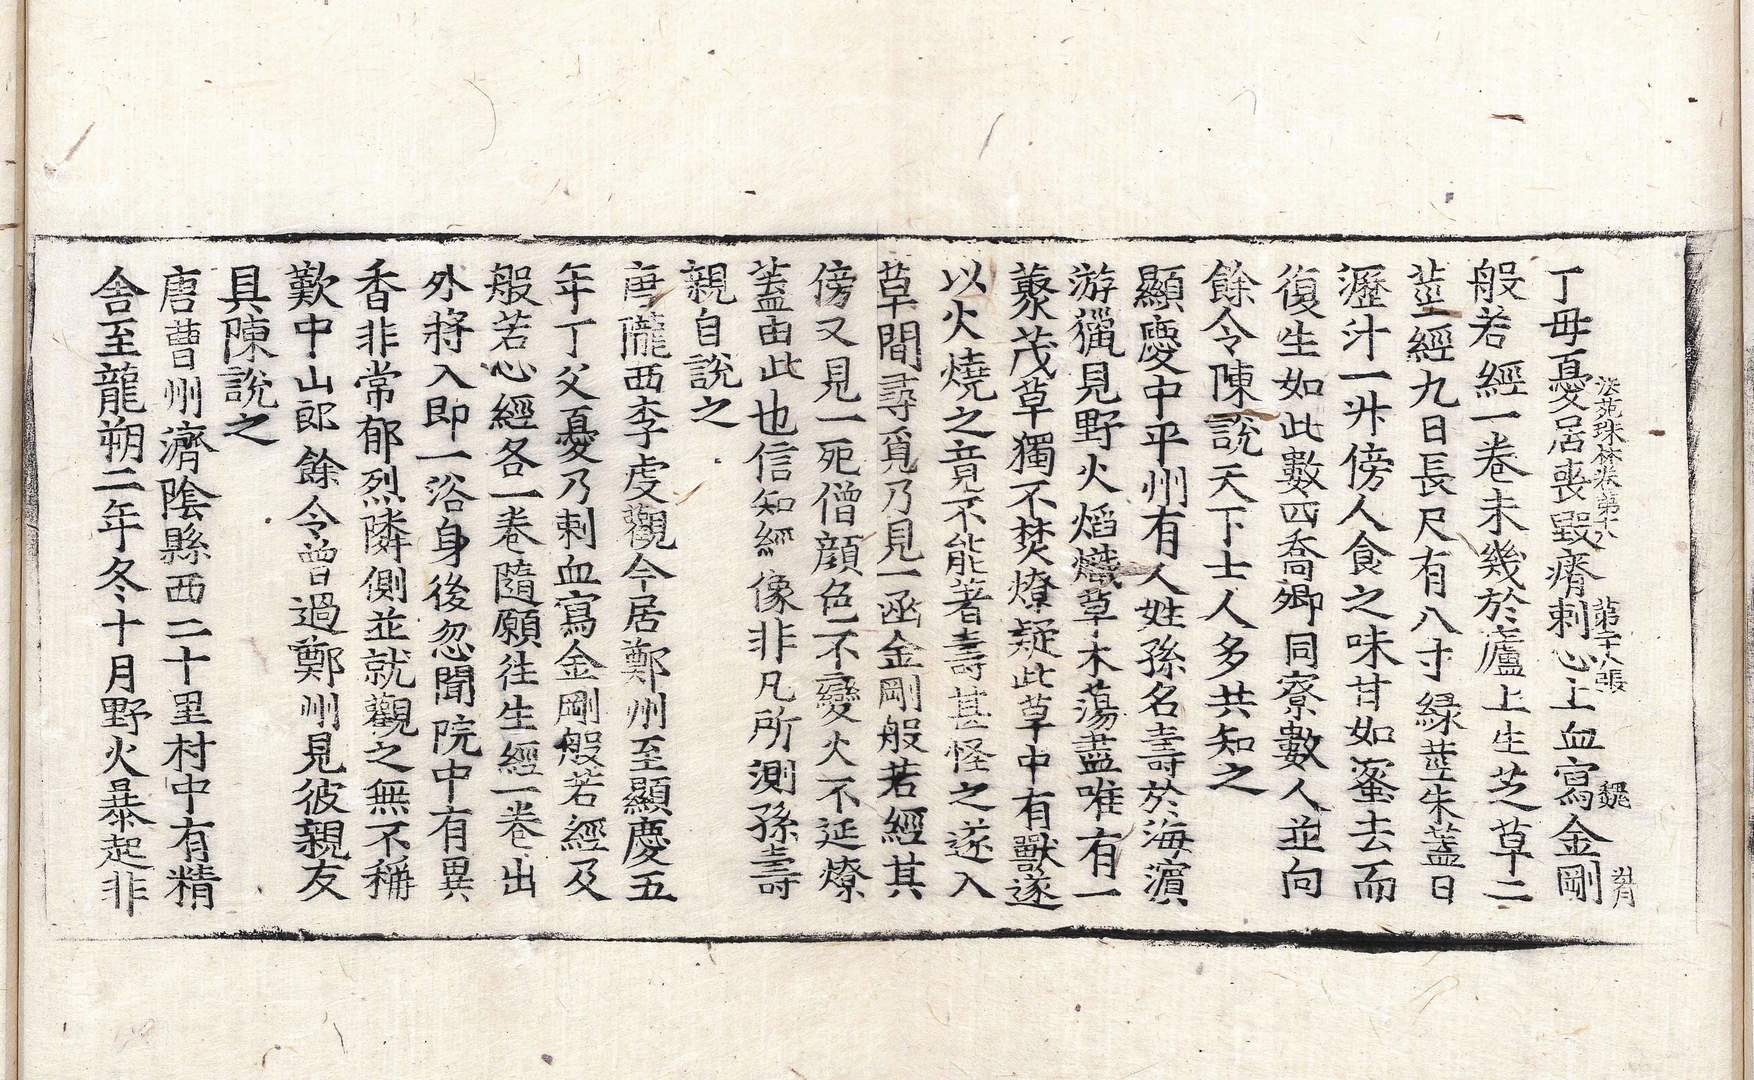 法苑珠林卷第十八 第二十八張 魏
丁毋憂居喪毀瘠刺心上血寫金剛
般若經一卷未幾於廬上生芝草二
莖經九日長尺有八寸綠莖朱蓋日
瀝汁一升傍人食之味甘如蜜去而
復生如此數四喬卿同寮數人並向
餘令陳說天下士人多共知之
顯慶中平州有人姓孫名壽於海濵
游獵見野火熖熾草木蕩盡唯有一
藂茂草獨不焚燎疑此草中有獸遂
以火燒之竟不能著壽甚怪之遂入
草間尋覓乃見一函金剛般若經其
傍又見一死僧顔色不變火不延燎
蓋由此也信知經像非凡所測孫壽
親自說之
唐隴西李虔觀今居鄭州至顯慶五
年丁父憂乃刺血寫金剛般若經及
般若心經各一卷隨願往生經一卷出
外將入即一浴身後忽聞院中有異
香非常郁烈隣側並就觀之無不稱
歎中山郎餘令曾過鄭州見彼親友
具陳說之
唐曹州濟陰縣西二十里村中有精
舍至龍朔二年冬十月野火暴起非